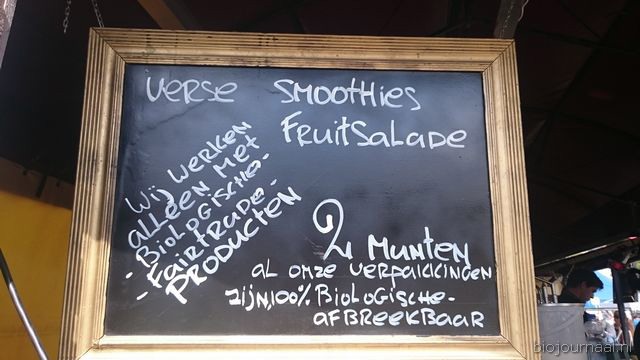 verse smoothies
fruitsalade
wij werken
alleen met
- Biologische-
- fairtrade-
PRODUCTEN
2 munten
al onze verpakkingen
zijn, 100% Biologische-
afbreekbaar
biojournaal.nl